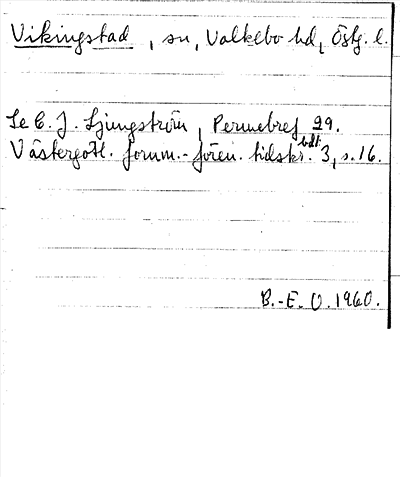 Vikingstad, sn, Valkebo hd, Östg. l.
Se C. J. Ljungström, Permebref 29.
Västergötl. fornm.-fören. tidskr. bd 1: 3, s. 16.
B.-E. O. 1960.